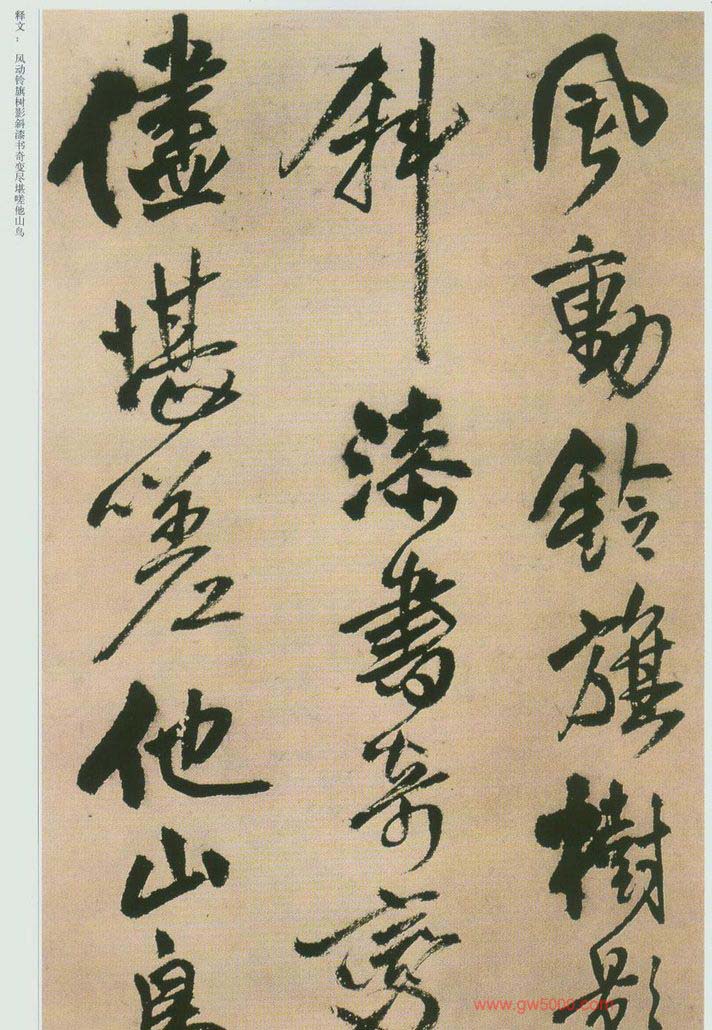 风动铃旗树影斜漆书奇变尽堪嗟他山鸟
風動鈴旗樹影
斜漆書奇變
儘堪嗟他山鳥
释文：
www.gw500